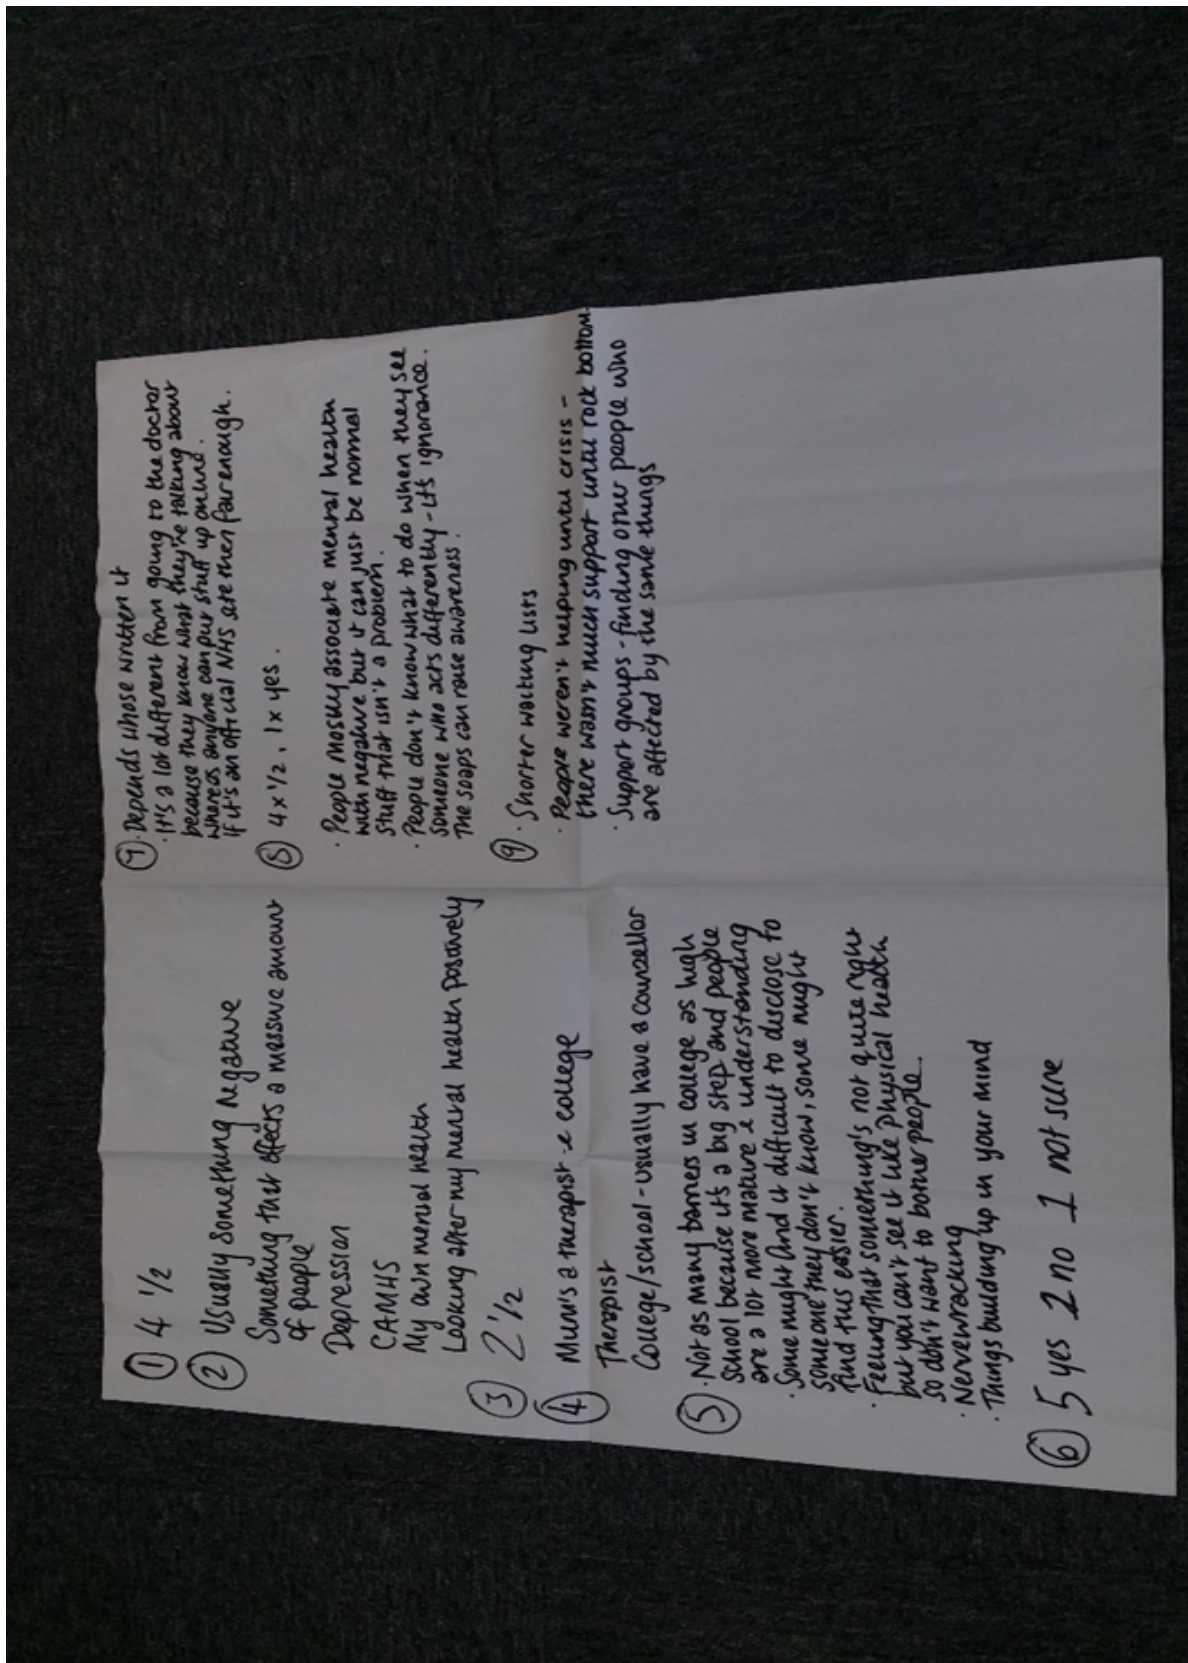 ① 4 1/2
② Usually something negative
Something that affects a massive amount
of people
Depression
CAMHS
My own mental health
Looking after my mental health positively
③ 2 1/2
④ Mum's a therapist & college
Therapist
College/school - usually have a councellor
⑤ · Not as many barriers in college as high
school because it's a big step and people
are a lot more mature & understanding
· Some might find it difficult to disclose to
someone they don't know, some might
find this easier.
· Feeling that something's not quite right
but you can't see it like physical health
so don't want to bother people.
· Nervewracking
· Things building up in your mind
⑥ 5 yes 2 no 1 not sure
⑦ · Depends whose written it
· It's a lot different from going to the doctor
because they know what they're talking about
whereas anyone can put stuff up online.
If it's an official NHS site then fair enough.
⑧ 4 x 1/2, 1 x yes.
· People mostly associate mental health
with negative but it can just be normal
stuff that isn't a problem.
· People don't know what to do when they see
someone who acts differently - it's ignorance.
The soaps can raise awareness.
⑨ · Shorter waiting lists
· People weren't helping until crisis -
there wasn't much support until rock bottom.
· Support groups - finding other people who
are affected by the same things